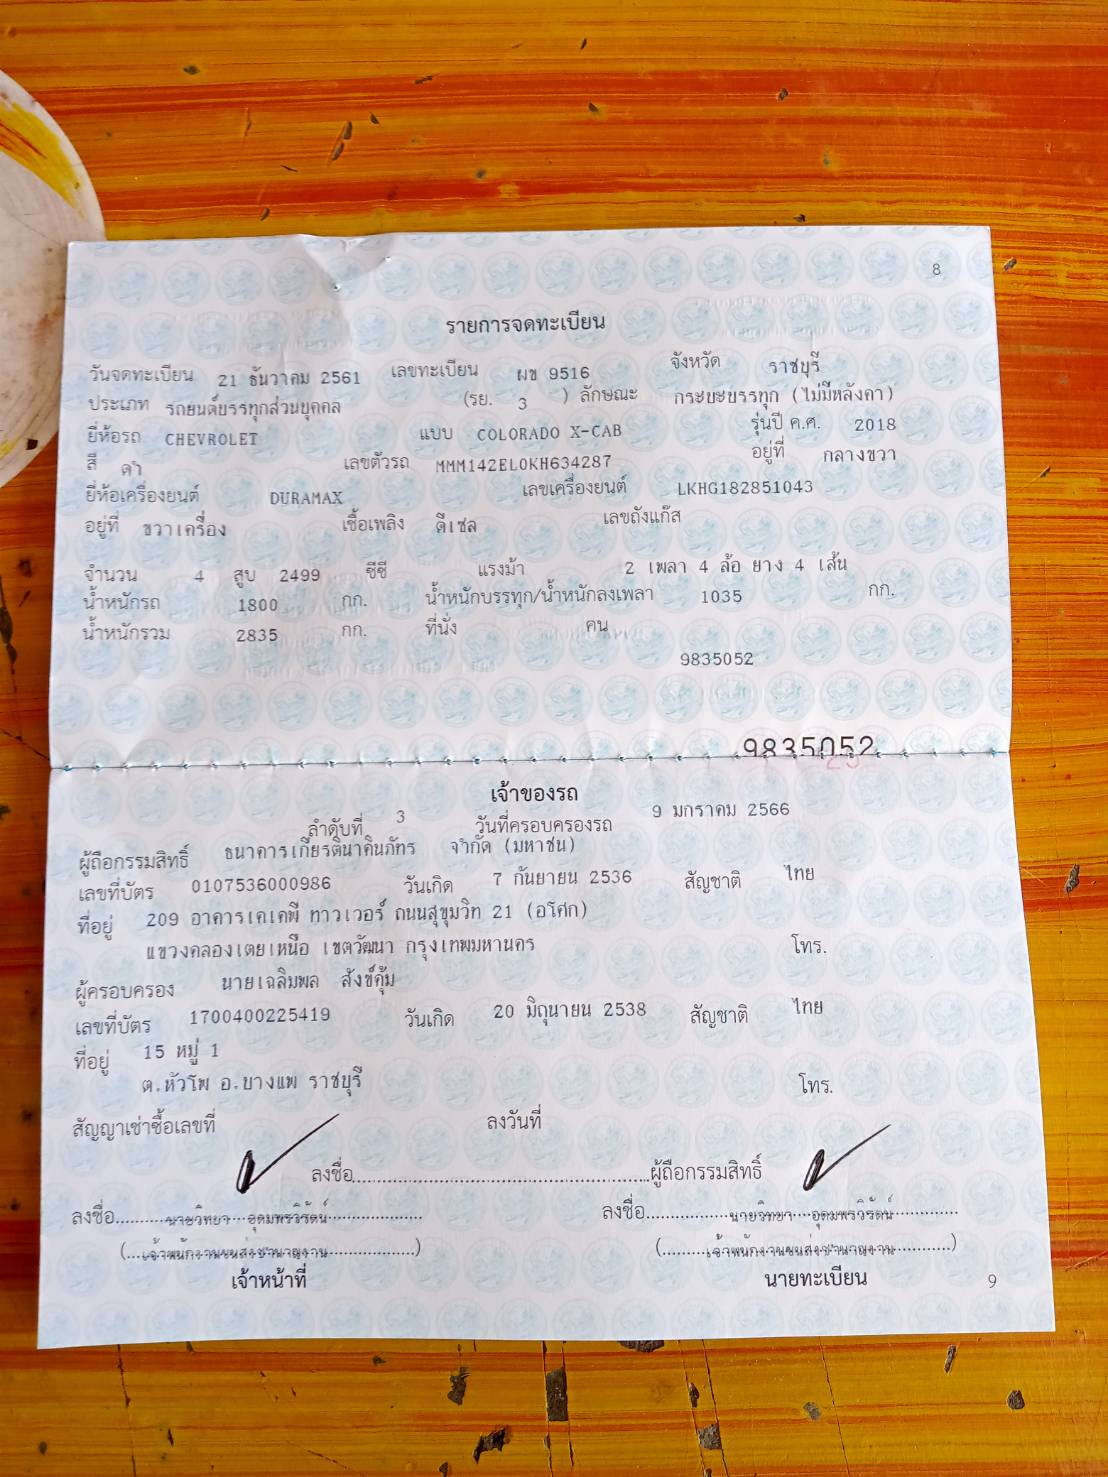 8
รายการจดทะเบียน
วันจดทะเบียน 21 ธันวาคม 2561 เลขทะเบียน ผข 9516 จังหวัด ราชบุรี
ประเภท รถยนต์บรรทุกส่วนบุคคล (รย. 3 ) ลักษณะ กระบะบรรทุก (ไม่มีหลังคา)
ยี่ห้อรถ CHEVROLET แบบ COLORADO X-CAB รุ่นปี ค.ศ. 2018
สี ดำ เลขตัวรถ MMM142EL0KH634287 อยู่ที่ กลางขวา
ยี่ห้อเครื่องยนต์ DURAMAX เลขเครื่องยนต์ LKHG182851043
อยู่ที่ ขวาเครื่อง เชื้อเพลิง ดีเซล เลขถังแก๊ส
จำนวน 4 สูบ 2499 ซีซี แรงม้า 2 เพลา 4 ล้อ ยาง 4 เส้น
น้ำหนักรถ 1800 กก. น้ำหนักบรรทุก/น้ำหนักลงเพลา 1035 กก.
น้ำหนักรวม 2835 กก. ที่นั่ง คน
9835052
9835052
เจ้าของรถ
ลำดับที่ 3 วันที่ครอบครองรถ 9 มกราคม 2566
ผู้ถือกรรมสิทธิ์ ธนาคารเกียรตินาคินภัทร จำกัด (มหาชน)
เลขที่บัตร 0107536000986 วันเกิด 7 กันยายน 2536 สัญชาติ ไทย
ที่อยู่ 209 อาคารเคเคพี ทาวเวอร์ ถนนสุขุมวิท 21 (อโศก)
แขวงคลองเตยเหนือ เขตวัฒนา กรุงเทพมหานคร โทร.
ผู้ครอบครอง นายเฉลิมพล สังข์คุ้ม
เลขที่บัตร 1700400225419 วันเกิด 20 มิถุนายน 2538 สัญชาติ ไทย
ที่อยู่ 15 หมู่ 1
ต.หัวโพ อ.บางแพ ราชบุรี โทร.
สัญญาเช่าซื้อเลขที่ ลงวันที่
ลงชื่อ............................................................ผู้ถือกรรมสิทธิ์
ลงชื่อ..........นายวิทยา...อุดมพรวิรัตน์.................. ลงชื่อ.................นายวิทยา....อุดมพรวิรัตน์.............
(....เจ้าพนักงานขนส่งชำนาญงาน.................) (.........เจ้าพนักงานขนส่งชำนาญงาน...........)
เจ้าหน้าที่ นายทะเบียน
9